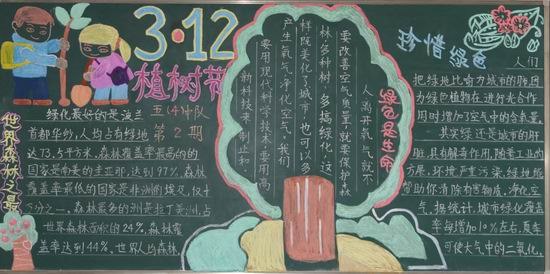 3·12
植树节
五(4)中队
第2期
世界森林之最
绿化最好的是波兰
首都华纱，人均占有绿地
达73.5平方米。森林覆盖率最高的
国家是南美的圭亚那，达到97%。森林
覆盖率最低的国家是非洲的埃及，仅十
万分之一。森林最多的洲是拉丁美洲，占
世界森林面积的24%，森林覆
盖率达到44%，世界人均森林
绿色是生命
人离开氧气就不
要改善空气质量，就要保护森
林，多种树，多搞绿化，这
样既美化了城市，也可以多
产生氧气，净化空气。我们
要用现代科学技术，要用高
新科技来，制止和
珍惜绿色
人们
把绿地比喻为城市的肺，因
为绿色植物在进行光合作
用时增加了空气中的含氧量。
其实绿还是城市的肝
脏，具有解毒作用。随着工业的
发展，环境严重污染，绿地能
帮助你消除有害物质，净化空
气，据统计，城市绿化覆盖
率每增加10%左右，夏季
可使大气中的二氧化